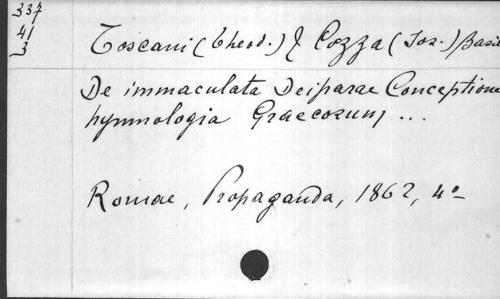 337
41
3
Toscani (Theod.) & Cozza (Jos.) Basil
De immaculata Deiparae Conceptione
hymnologia Graecorum ...
Romae, Propaganda, 1862, 4º